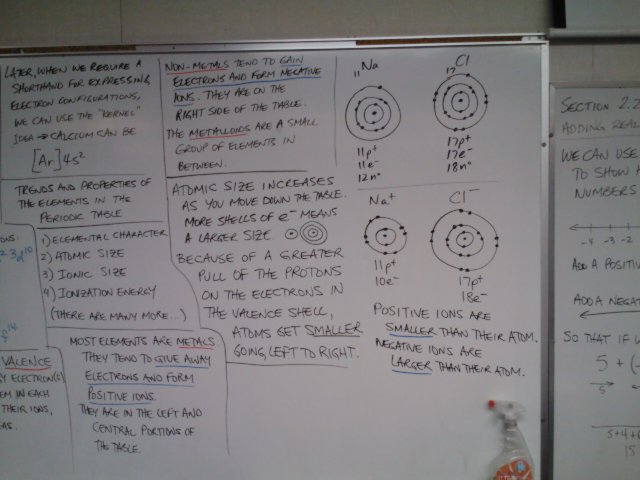 LATER, WHEN WE REQUIRE A
SHORTHAND FOR EXPRESSING
ELECTRON CONFIGURATIONS,
WE CAN USE THE "KERNEL"
IDEA → CALCIUM CAN BE
[Ar]4s²
TRENDS AND PROPERTIES OF
THE ELEMENTS IN THE
PERIODIC TABLE
1) ELEMENTAL CHARACTER
2) ATOMIC SIZE
3) IONIC SIZE
4) IONIZATION ENERGY
(THERE ARE MANY MORE...)
MOST ELEMENTS ARE METALS
THEY TEND TO GIVE AWAY
ELECTRONS AND FORM
POSITIVE IONS.
THEY ARE IN THE LEFT AND
CENTRAL PORTIONS OF
THE TABLE.
3d¹⁰
VALENCE
ELECTRON(S)
IN EACH
THEIR IONS,
NON-METALS TEND TO GAIN
ELECTRONS AND FORM NEGATIVE
IONS. THEY ARE ON THE
RIGHT SIDE OF THE TABLE.
THE METALLOIDS ARE A SMALL
GROUP OF ELEMENTS IN
BETWEEN.
ATOMIC SIZE INCREASES
AS YOU MOVE DOWN THE TABLE.
MORE SHELLS OF e⁻ MEANS
A LARGER SIZE.
BECAUSE OF A GREATER
PULL OF THE PROTONS
ON THE ELECTRONS IN
THE VALENCE SHELL,
ATOMS GET SMALLER
GOING LEFT TO RIGHT.
₁₁Na
11p⁺
11e⁻
12n°
₁₇Cl
17p⁺
17e⁻
18n°
Na⁺
11p⁺
10e⁻
Cl⁻
17p⁺
18e⁻
POSITIVE IONS ARE
SMALLER THAN THEIR ATOM.
NEGATIVE IONS ARE
LARGER THAN THEIR ATOM.
SECTION 2.2
ADDING
WE CAN USE
TO SHOW
NUMBERS
-4 -3 -2
ADD A POSITIV
ADD A NEGA
SO THAT IF
5 + (-
5
5+4+
15